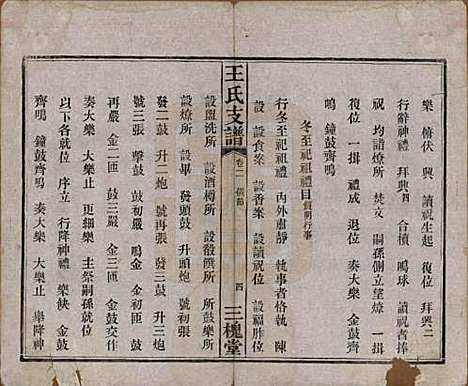 樂 俯伏 興 讀祝生起 復位 拜興二
行辭神禮 拜興四 合櫝 鳴球 讀祝者捧
祝 均詣燎所 焚文 嗣孫側立望燎 一揖
復位 一揖 禮成 退位 奏大樂 金鼓齊
鳴 鐘鼓齊鳴
冬至祀祖禮目 質明行事
行冬至祀祖禮 內外肅靜 執事者恪執 陳
設 設食案 設香案 設讀祝位 設福胙位
王氏支譜
卷二 儀節
四
三槐堂
設盥洗所 設酒樽所 設發饌所 設鼓樂所
設燎所 設畢 發頭鼓 升頭炮 號一張
號二張 升二炮 號再張 發三鼓 升三炮
號三張 擊鼓 鼓初嚴 鳴金 金初匝 鼓
再嚴 金二匝 鼓三嚴 金三匝 金鼓交作
奏大樂 大樂止 更細樂 主祭嗣孫就位
以下各就位 序立 行降神禮 樂止
齊鳴 鐘鼓齊鳴 奏大樂 大樂止 舉降神